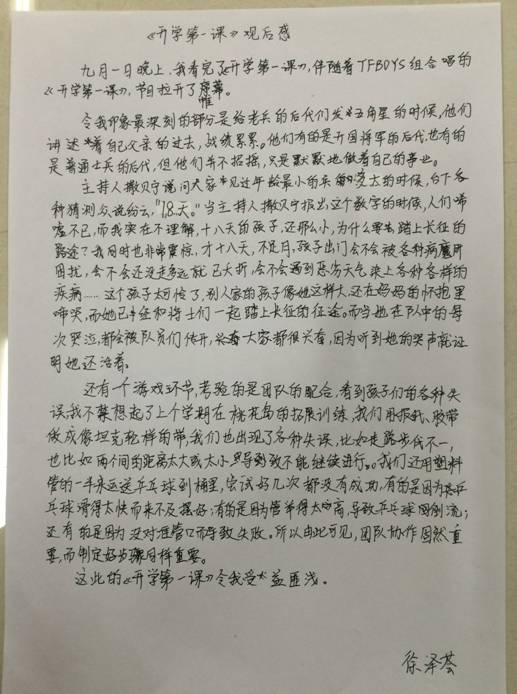 《开学第一课》观后感
九月一日晚上，我看完了《开学第一课》，伴随着TFBOYS组合唱的
《开学第一课》，节目拉开了帷幕。
令我印象最深刻的部分是给老兵的后代们发五角星的时候，他们
讲述着自己父亲的过去，战绩累累。他们有的是开国将军的后代，也有的
是普通士兵的后代，但他们并不招摇，只是默默地做着自己的事业。
主持人撒贝宁说问大家见过年龄最小的兵多大的时候，台下各
种猜测众说纷云，"18天。"当主持人撒贝宁报出这个数字的时候，人们唏
嘘不已，而我实在不理解，十八天的孩子，还那么小，为什么要去踏上长征的
路途？我同时也非常震惊，才十八天，不足月，孩子出门会不会被各种病魔所
困扰，会不会还没走多远就已夭折，会不会遇到恶劣天气染上各种各样的
疾病……这个孩子太可怜了，别人家的孩子像她这样大，还在妈妈的怀抱里
啼哭，而她已经和将士们一起踏上长征的征途。而当她在队中的每
次哭泣，都会被队员们传开，大家都很兴奋，因为听到她的哭声就证
明她还活着。
还有一个游戏环节，考验的是团队的配合，看到孩子们的各种失
误，我不禁想起了上个学期在桃花岛的拓展训练，我们用报纸、胶带
做成像坦克轮样的带，我们也出现了各种失误，比如走路步伐不一，
也比如两个间的距离太大或太小导致不能继续进行。我们还用塑料
管的一半来运送乒乓球到桶里，尝试好几次都没有成功，有的是因为乒乓
球滑得太快而来不及接好；有的是因为管举得太高，导致乒乓球倒流；
还有的是因为没对准管口而导致失败。所以由此可见，团队协作固然重
要，而制定好步骤同样重要。
这次的《开学第一课》令我受益匪浅。
徐泽荟